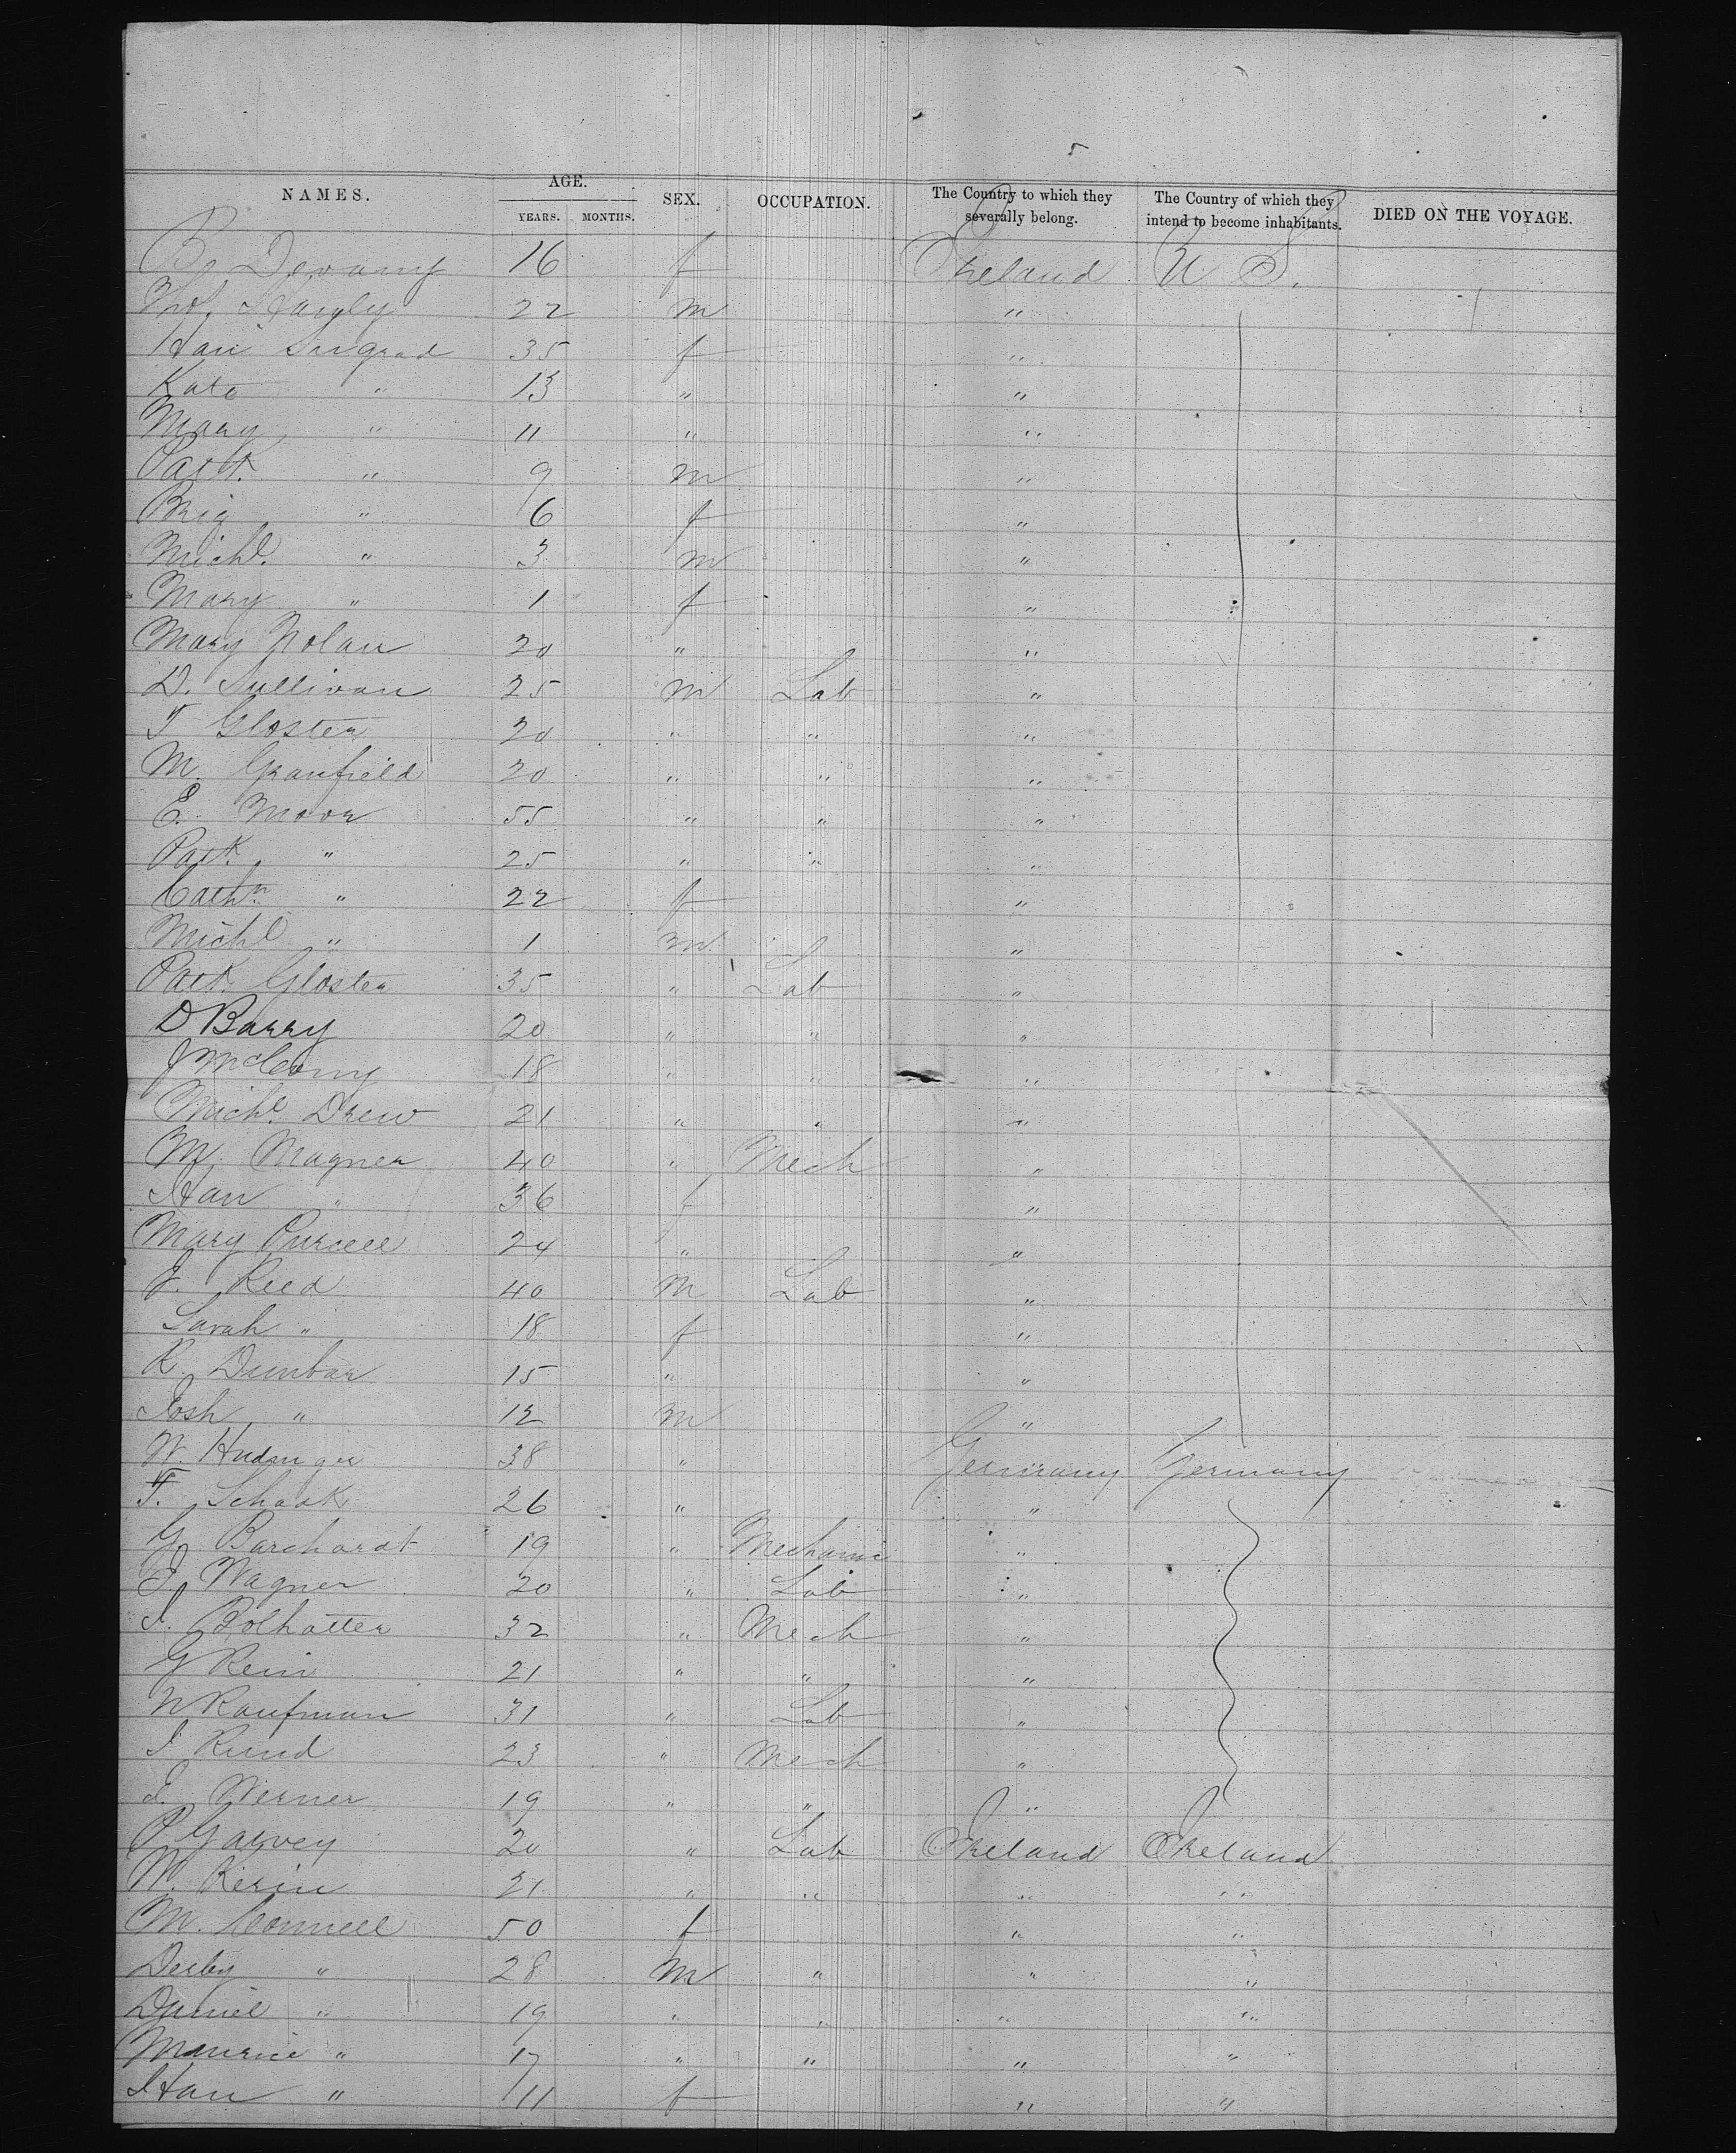 5
NAMES. AGE. YEARS. MONTHS. SEX. OCCUPATION. The Country to which they severally belong. The Country of which they intend to become inhabitants. DIED ON THE VOYAGE.
B. Devany 16 f Ireland U S.
22 m "
Han 35 f "
Kate " 13 " "
Mary " 11 " "
Patk. " 9 m "
Brig " 6 f "
Michl. " 3 m "
Mary " 1 f "
Mary Nolan 20 " "
D. Sullivan 25 m Lab "
T Gloster 20 " " "
M. Granfield 20 " " "
E. Moor 55 " " "
Patk. " 25 " " "
Cathn. " 22 f "
Michl " 1 m "
Patk. Gloster 35 " Lab "
D Barry 20 " " "
J 18 " " "
Michl. Drew 21 " " "
M. Magner 40 " Mech "
Han " 36 f "
Mary Purcell 24 " "
J. Reed 40 m Lab "
Sarah " 18 f "
R. Dunbar 15 " "
Josh " 12 m "
W. 38 " Germany Germany
F. Schaak 26 " "
G. Barchardt 19 " Mechanic "
E. Wagner 20 " Lab "
I. Bolhatter 32 " Mech "
G Rein 21 " " "
N Kaufman 31 " Lab "
I Rund 23 " Mech "
I. Werner 19 " " "
P Garvey 20 " Lab Ireland Ireland
W. Kerin 21 " " " "
M. Connell 50 f " "
Derby " 28 m " " "
Daniel " 19 " " " "
Maurice " 17 " " " "
Han " 11 f " "